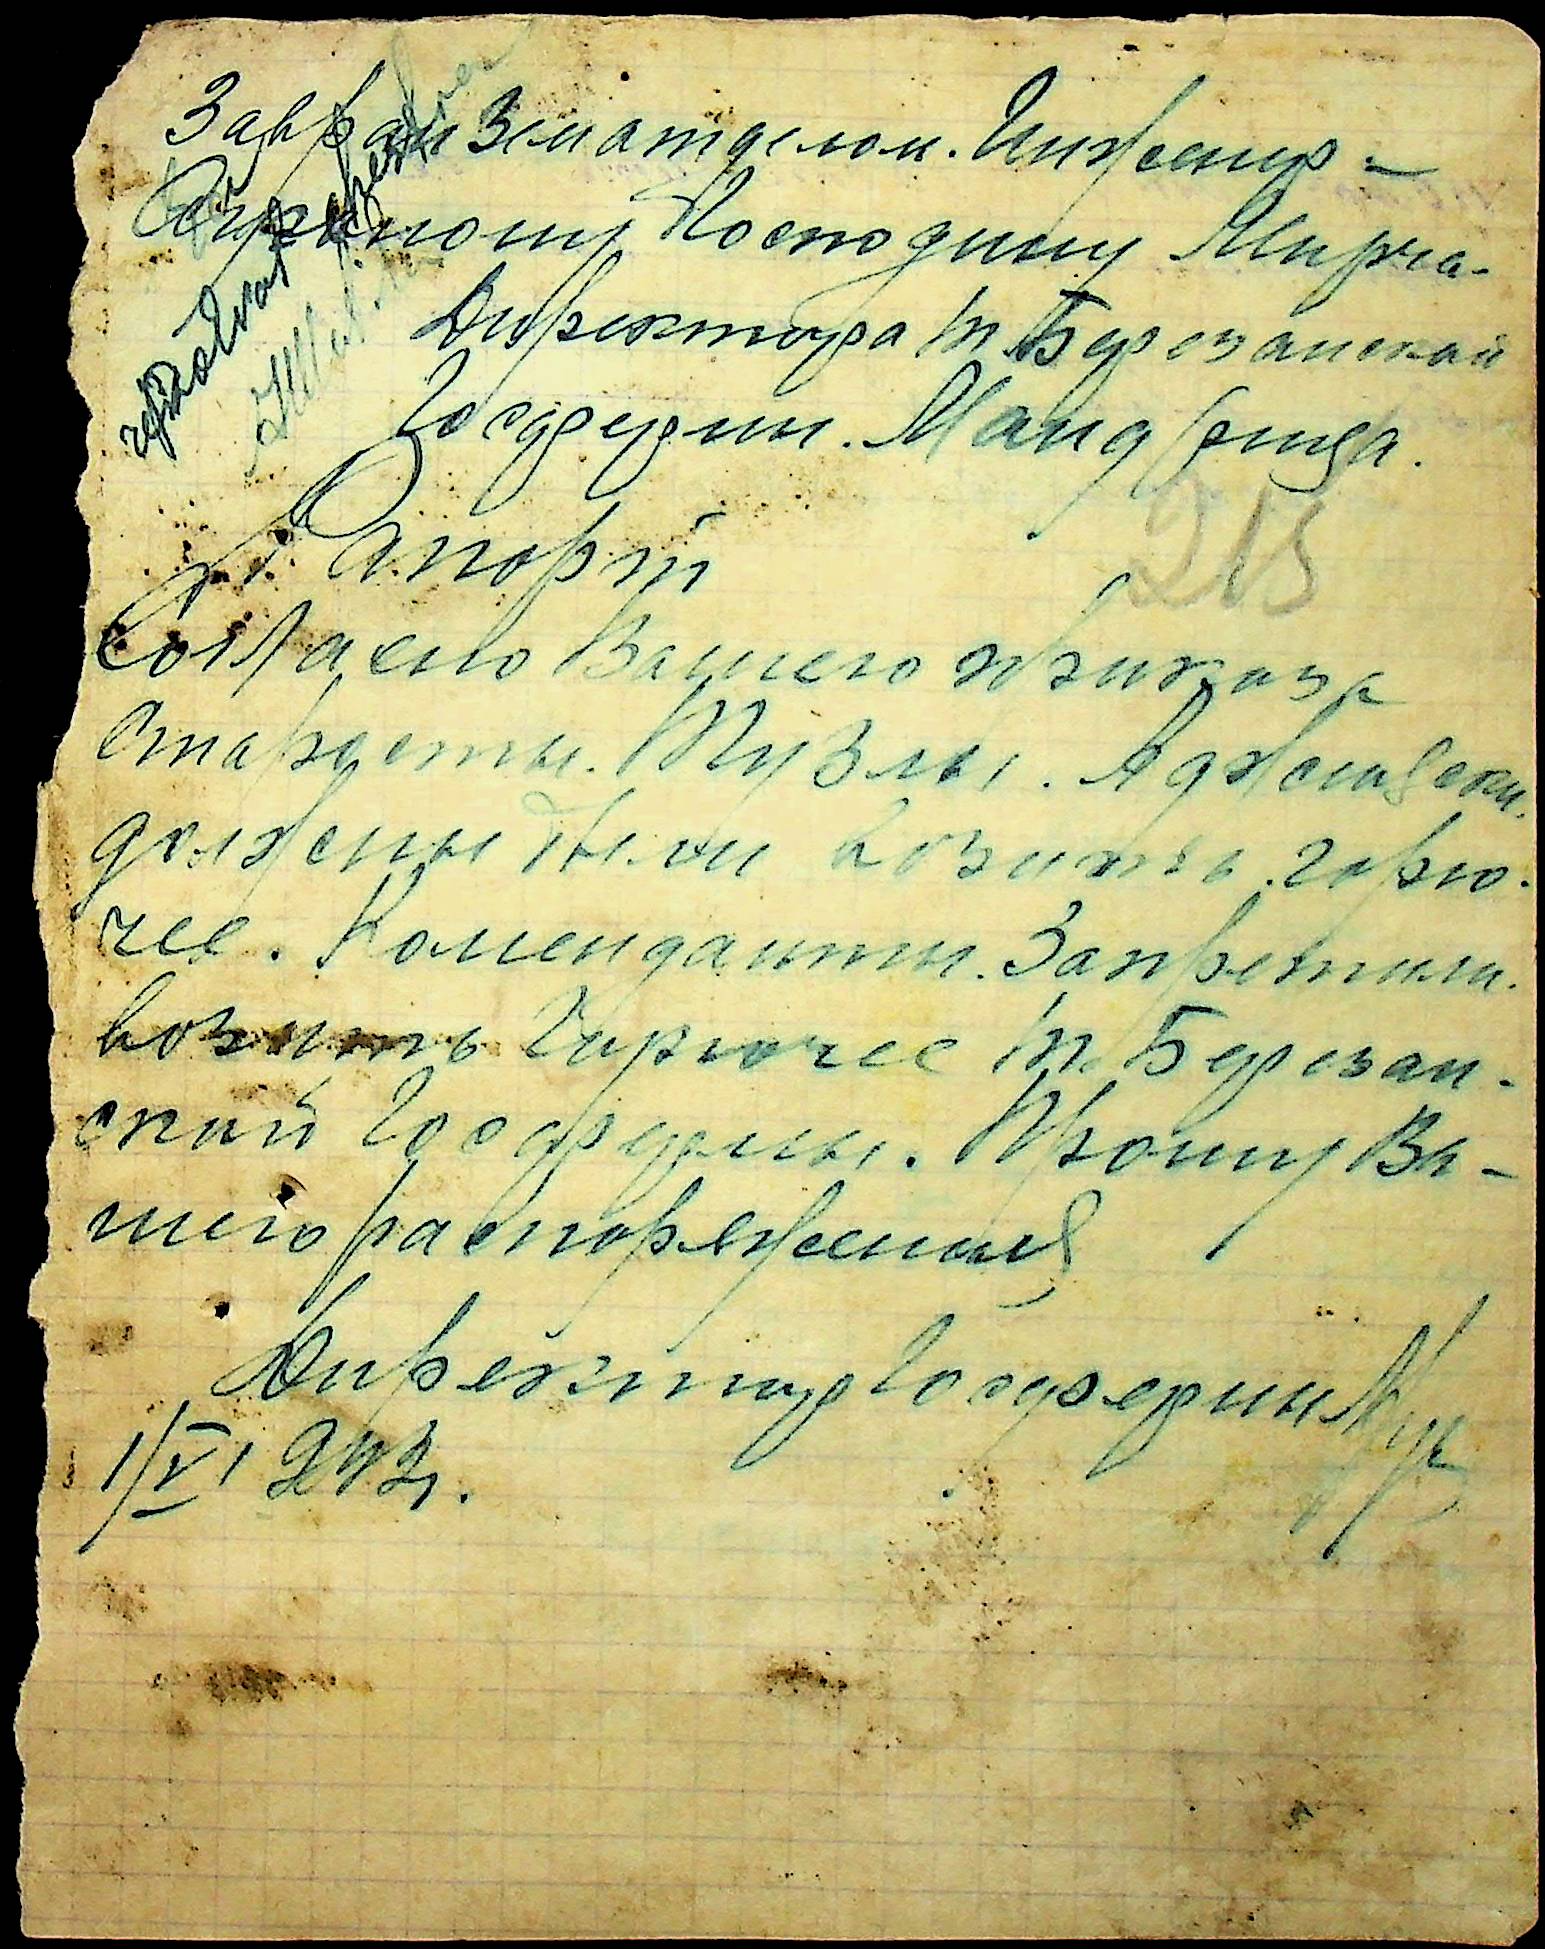 Завраи Земотделом. Инженер-
Аграному Господину Мирча.
Директора т. Березанской
Госфермы.
Рапорт
215
Согласно Вашего приказа
Старосты. Тузлы. Аджияски.
должены были возить. горю-
чее. Комендантти. Запретили.
возить Горючее т. Березан-
ской Госфермы. Прошу Ва-
шего распоряжения
Директор Госфермы
1/VI 1942 г.